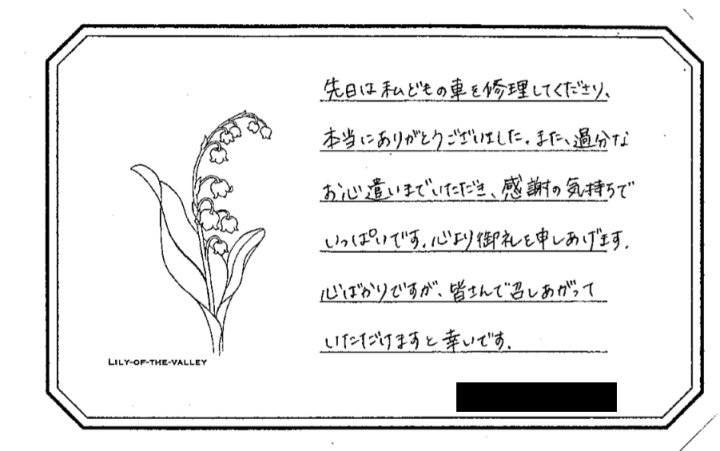 先日は私どもの車を修理してくださり、
本当にありがとうございました。また、過分な
お心遣いまでいただき、感謝の気持ちで
いっぱいです。心より御礼を申しあげます。
心ばかりですが、皆さんで召しあがって
いただけますと幸いです。
LILY-OF-THE-VALLEY